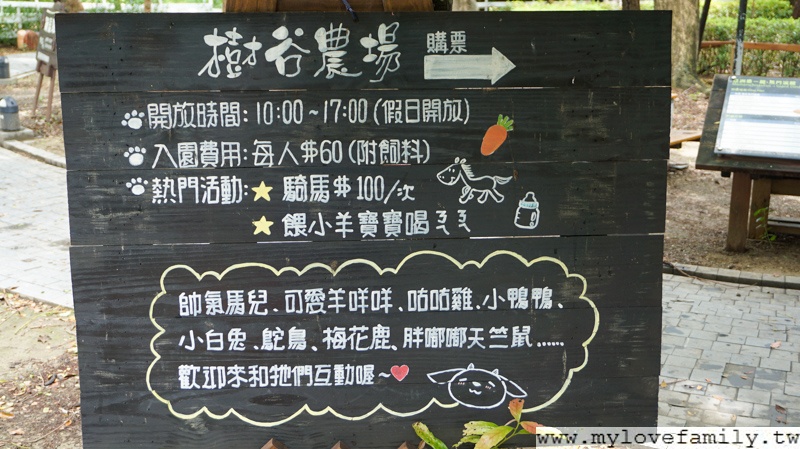 樹谷農場 購票
開放時間: 10:00~17:00 (假日開放)
入園費用: 每人$60 (附飼料)
熱門活動: ★ 騎馬$100/次
★ 餵小羊寶寶喝ㄋㄟㄋㄟ
帥氣馬兒、可愛羊咩咩、咕咕雞、小鴨鴨、
小白兔、鴕鳥、梅花鹿、胖嘟嘟天竺鼠......
歡迎來和牠們互動喔~
www.mylovefamily.tw